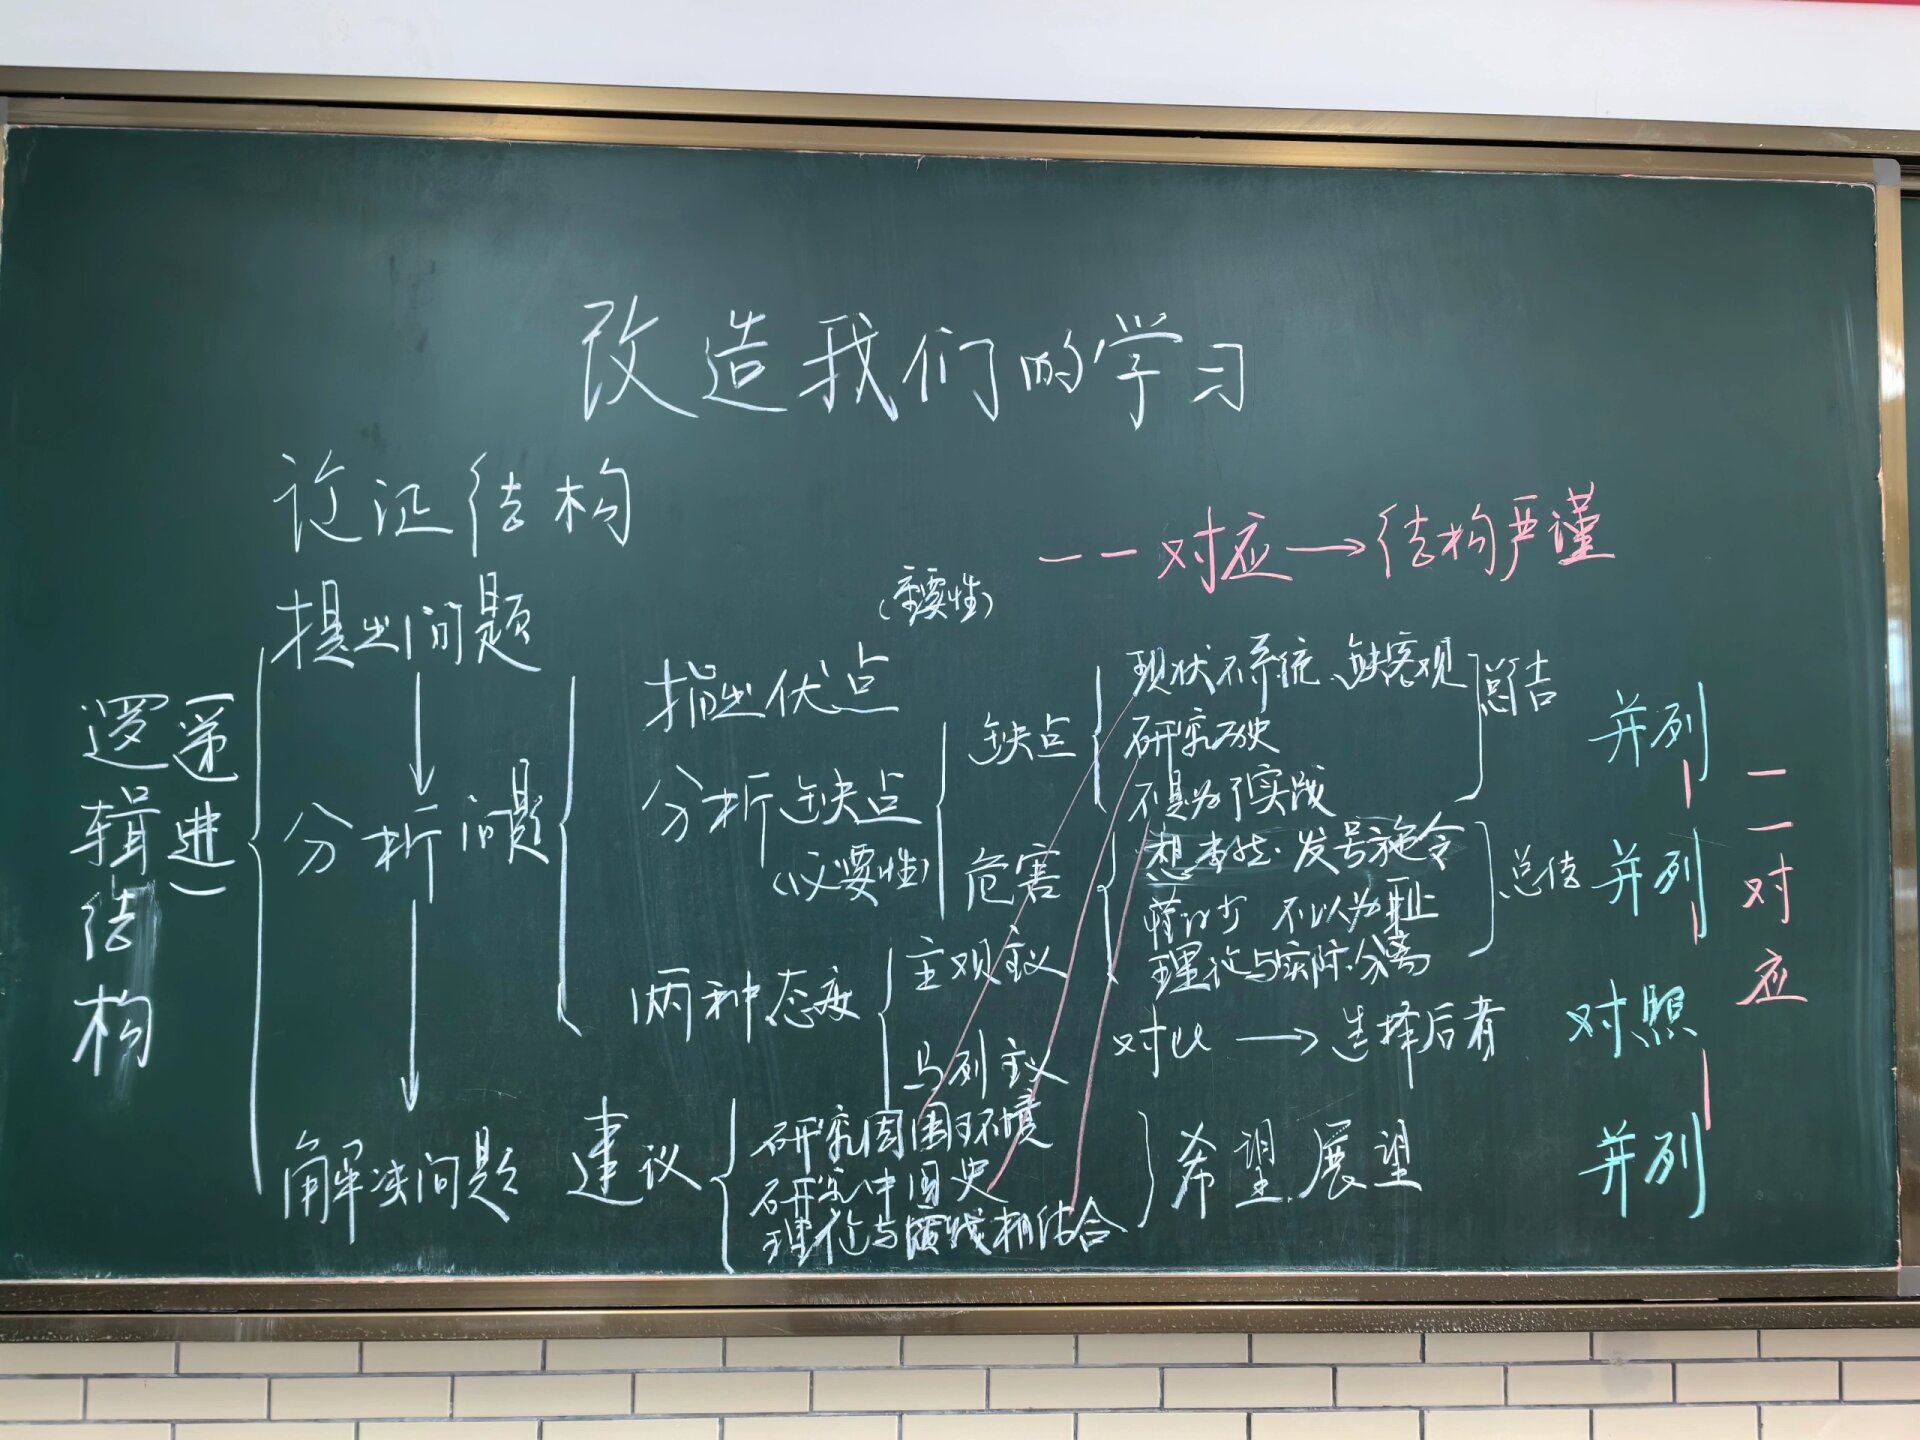 改造我们的学习
论证结构
一一对应→结构严谨
(重要性)
逻辑结构
(递进)
提出问题
分析问题
解决问题
指出优点
分析缺点
(必要性)
两种态度
缺点
现状不系统、缺客观
研究历史
不是为了实践
总结
并列
危害
想当然、发号施令
懂得少 不以为耻
理论与实际分离
总结
并列
主观主义
马列主义
对比→选择后者
对照
建议
研究周围环境
研究中国史
理论与实践相结合
希望展望
并列
一一对应